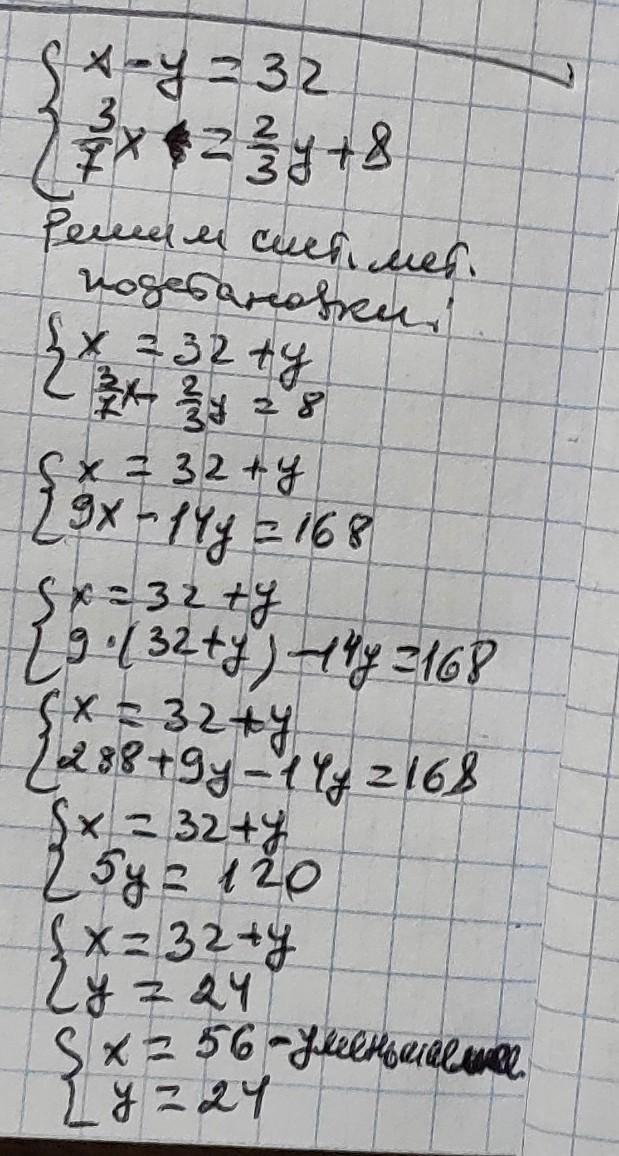 { x - y = 32
3/7 x = 2/3 y + 8
Решим сист. мет.
подстановки:
{ x = 32 + y
3/7 x - 2/3 y = 8
{ x = 32 + y
9x - 14y = 168
{ x = 32 + y
9 · (32 + y) - 14y = 168
{ x = 32 + y
288 + 9y - 14y = 168
{ x = 32 + y
5y = 120
{ x = 32 + y
y = 24
{ x = 56 - уменьшаемое
y = 24